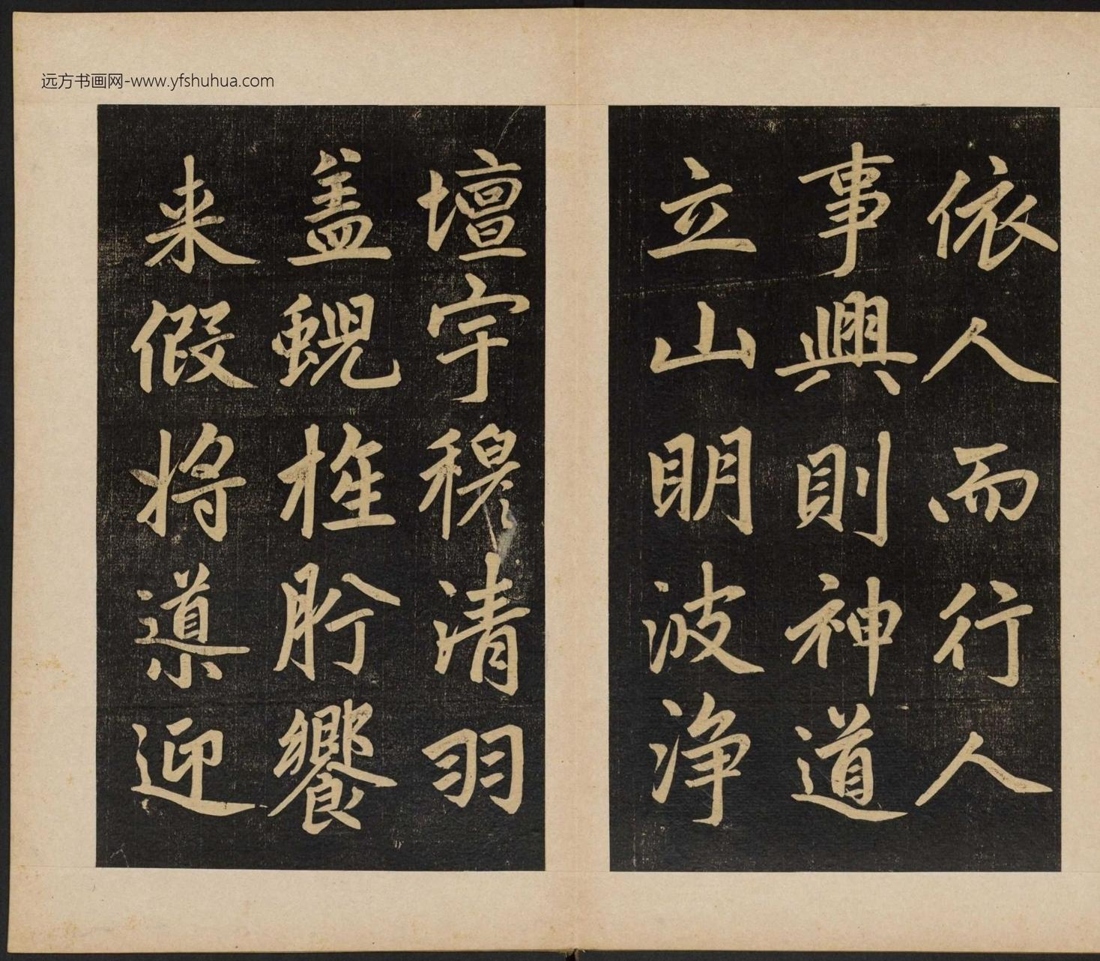 远方书画网-www.yfshuhua.com
依人而行人
事興則神道
立山眀波淨
壇宇穆清羽
盖蜺旌肹饗
来假将導迎